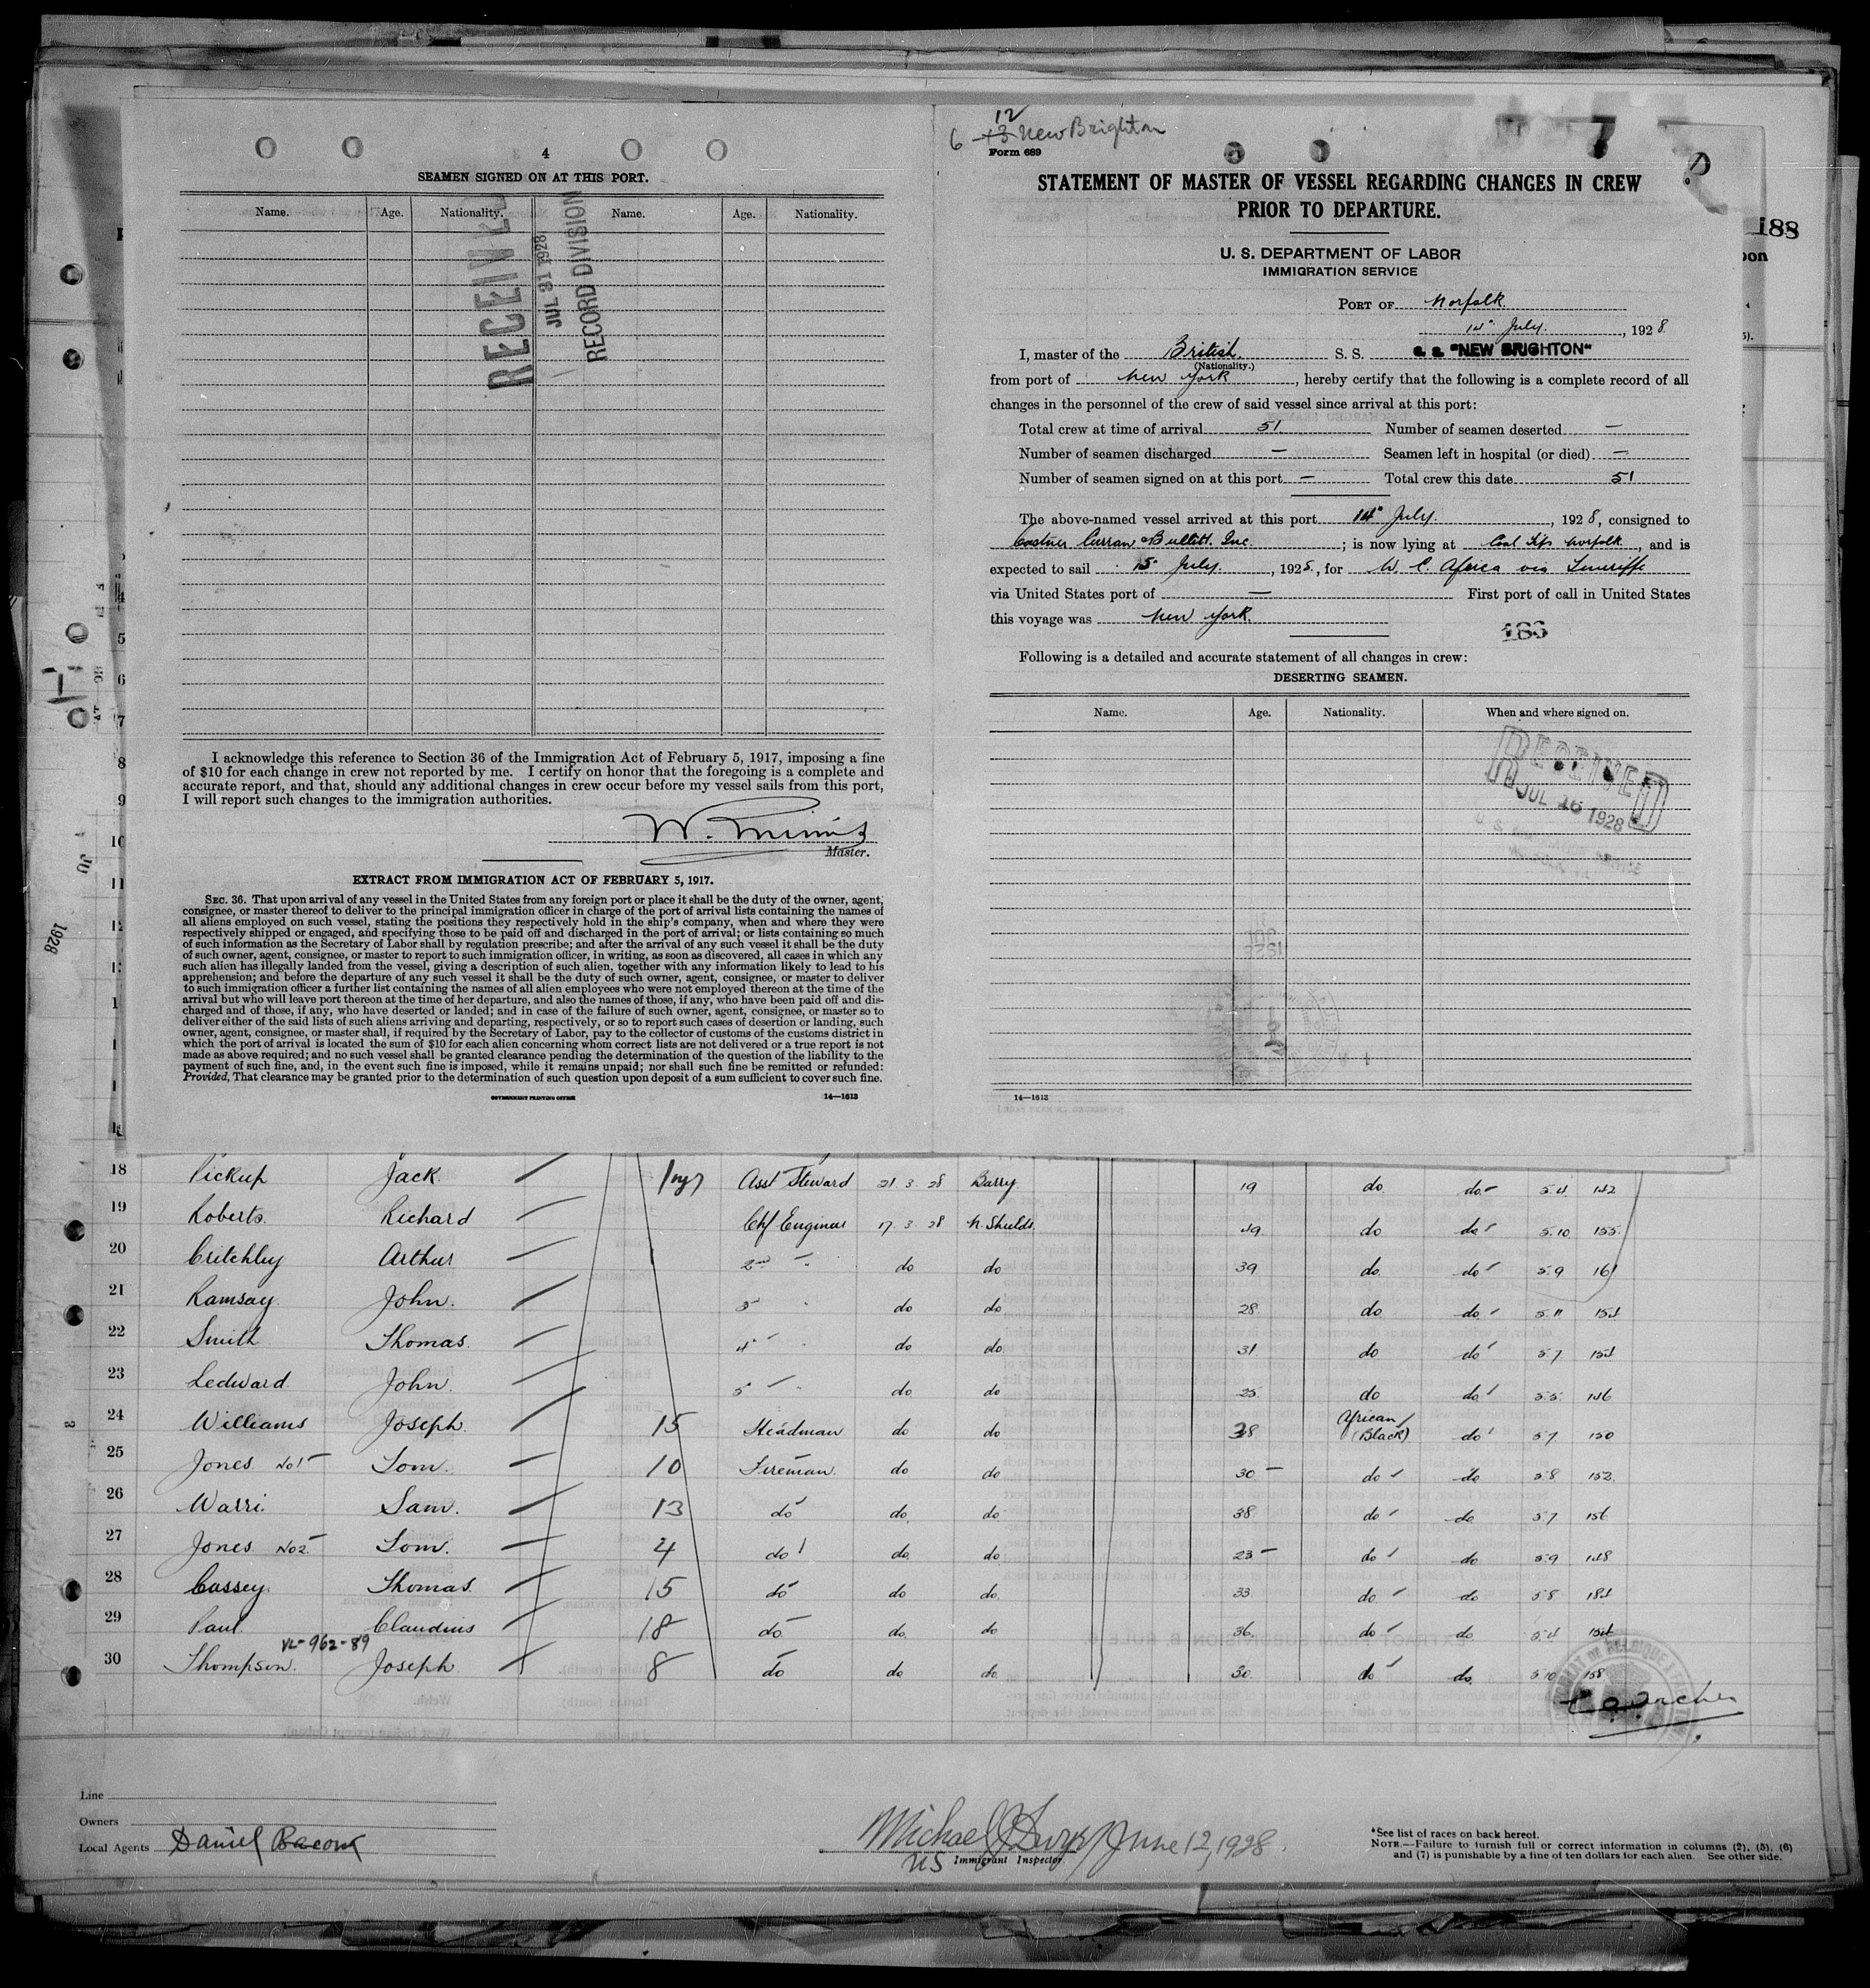 4
SEAMEN SIGNED ON AT THIS PORT.
Name. Age. Nationality. Name. Age. Nationality.
RECEIVED
JUL 31 1928
RECORD DIVISION
I acknowledge this reference to Section 36 of the Immigration Act of February 5, 1917, imposing a fine
of $10 for each change in crew not reported by me. I certify on honor that the foregoing is a complete and
accurate report, and that, should any additional changes in crew occur before my vessel sails from this port,
I will report such changes to the immigration authorities.
W.
Master.
EXTRACT FROM IMMIGRATION ACT OF FEBRUARY 5, 1917.
SEC. 36. That upon arrival of any vessel in the United States from any foreign port or place it shall be the duty of the owner, agent,
consignee, or master thereof to deliver to the principal immigration officer in charge of the port of arrival lists containing the names of
all aliens employed on such vessel, stating the positions they respectively hold in the ship's company, when and where they were
respectively shipped or engaged, and specifying those to be paid off and discharged in the port of arrival; or lists containing so much
of such information as the Secretary of Labor shall by regulation prescribe; and after the arrival of any such vessel it shall be the duty
of such owner, agent, consignee, or master to report to such immigration officer, in writing, as soon as discovered, all cases in which any
such alien has illegally landed from the vessel, giving a description of such alien, together with any information likely to lead to his
apprehension; and before the departure of any such vessel it shall be the duty of such owner, agent, consignee, or master to deliver
to such immigration officer a further list containing the names of all alien employees who were not employed thereon at the time of the
arrival but who will leave port thereon at the time of her departure, and also the names of those, if any, who have been paid off and dis-
charged and of those, if any, who have deserted or landed; and in case of the failure of such owner, agent, consignee, or master so to
deliver either of the said lists of such aliens arriving and departing, respectively, or so to report such cases of desertion or landing, such
owner, agent, consignee, or master shall, if required by the Secretary of Labor, pay to the collector of customs of the customs district in
which the port of arrival is located the sum of $10 for each alien concerning whom correct lists are not delivered or a true report is not
made as above required; and no such vessel shall be granted clearance pending the determination of the question of the liability to the
payment of such fine, and, in the event such fine is imposed, while it remains unpaid; nor shall such fine be remitted or refunded:
Provided, That clearance may be granted prior to the determination of such question upon deposit of a sum sufficient to cover such fine.
GOVERNMENT PRINTING OFFICE 14—1613
12
6 - 13 New Brighton
Form 689
7
STATEMENT OF MASTER OF VESSEL REGARDING CHANGES IN CREW
PRIOR TO DEPARTURE.
U. S. DEPARTMENT OF LABOR
IMMIGRATION SERVICE
PORT OF Norfolk
14" July, 1928
I, master of the British S. S. S. S. "NEW BRIGHTON"
(Nationality.)
from port of New York, hereby certify that the following is a complete record of all
changes in the personnel of the crew of said vessel since arrival at this port:
Total crew at time of arrival 51 Number of seamen deserted —
Number of seamen discharged — Seamen left in hospital (or died) —
Number of seamen signed on at this port — Total crew this date 51
The above-named vessel arrived at this port 14" July, 1928, consigned to
Castner Curran & Bullitt. Inc.; is now lying at Coal Tips Norfolk, and is
expected to sail 15" July, 1928, for W. C. Africa via Teneriffe
via United States port of — First port of call in United States
this voyage was New York.
186
Following is a detailed and accurate statement of all changes in crew:
DESERTING SEAMEN.
Name. Age. Nationality. When and where signed on.
RECEIVED
JUL 16 1928
14—1613
188
18 Pickup Jack Asst Steward 21.3.28 Barry. 19 do do 5.4 142
19 Roberts. Richard Chf Engineer 17.3.28 N. Shields. 49 do do 5.10 155
20 Critchley Arthur 2nd " do do 39 do do 5.9 161
21 Ramsay. John. 3" " do do 28 do do 5.11 154
22 Smith Thomas. 4" " do do 31 do do 5.7 154
23 Ledward John. 5" " do do 25 do do 5.5 146
24 Williams Joseph. 15 Headman do do 38 African (Black) do 5.7 150
25 Jones No1 Tom. 10 Fireman. do do 30 do do 5.8 152
26 Warri. Sam. 13 do do do 38 do do 5.7 156
27 Jones No2. Tom. 4 do do do 23 do do 5.9 148
28 Cassey. Thomas. 15 do do do 33 do do 5.8 184
29 Paul Claudius 18 do do do 36 do do 5.4 154
VL-962-89
30 Thompson. Joseph 8 do do do 30 do do 5.10 158
Line
Owners
Local Agents Daniel Bacon
Michael J Dwyer June 12, 1928.
US Immigrant Inspector
*See list of races on back hereof.
NOTE.—Failure to furnish full or correct information in columns (2), (5), (6)
and (7) is punishable by a fine of ten dollars for each alien. See other side.